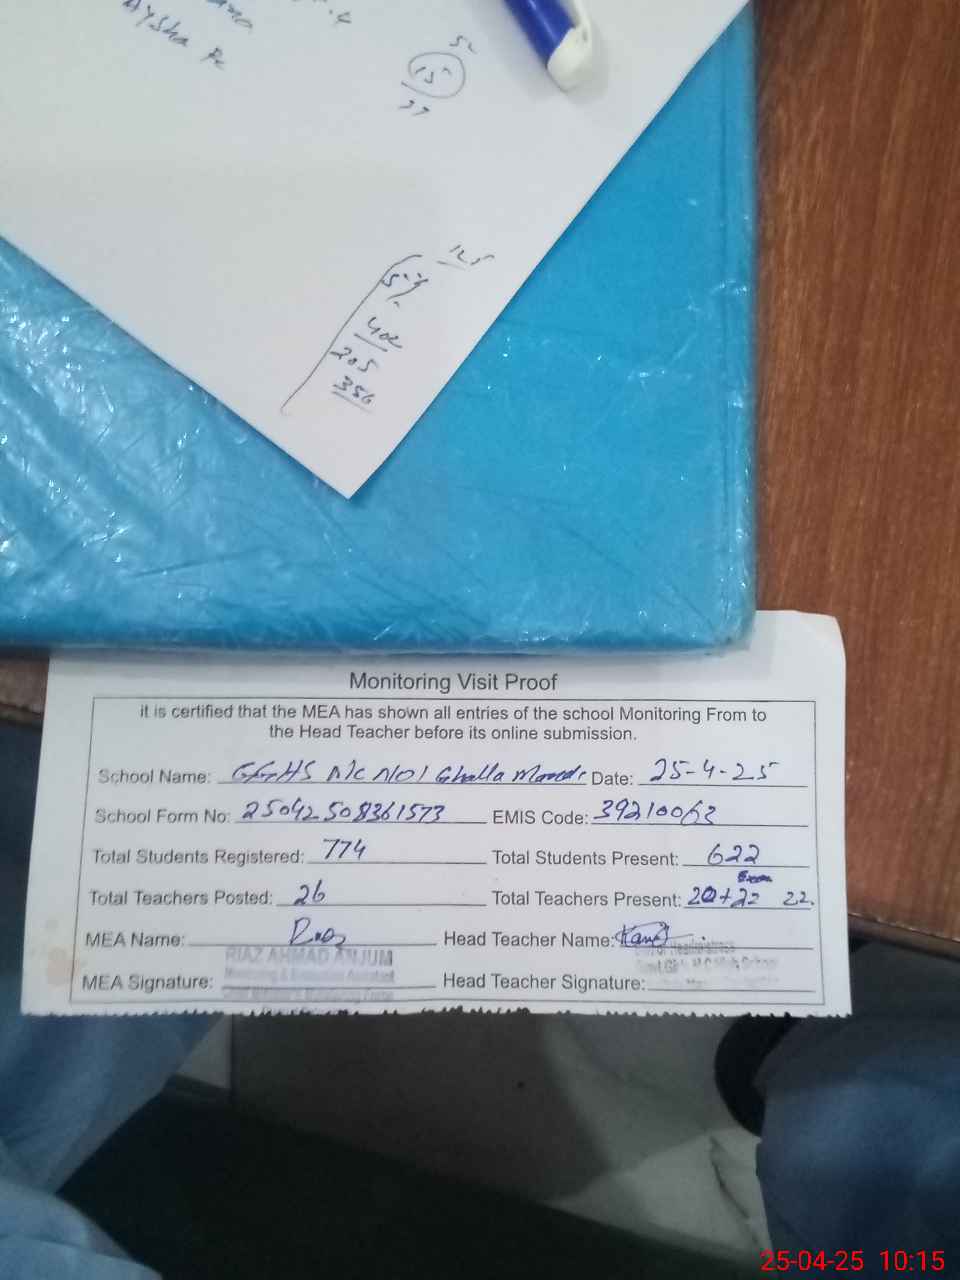 Aysha
15
125
402
205
356
Monitoring Visit Proof
it is certified that the MEA has shown all entries of the school Monitoring From to
the Head Teacher before its online submission.
School Name: GGHS MC NO1 Ghalla Mandi Date: 25-4-25
School Form No: 25042508361573 EMIS Code: 39210063
Total Students Registered: 774 Total Students Present: 622
Total Teachers Posted: 26 Total Teachers Present: 20+22 22.
MEA Name: Head Teacher Name:
RIAZ AHMAD ANJUM
MEA Signature: Head Teacher Signature:
25-04-25 10:15